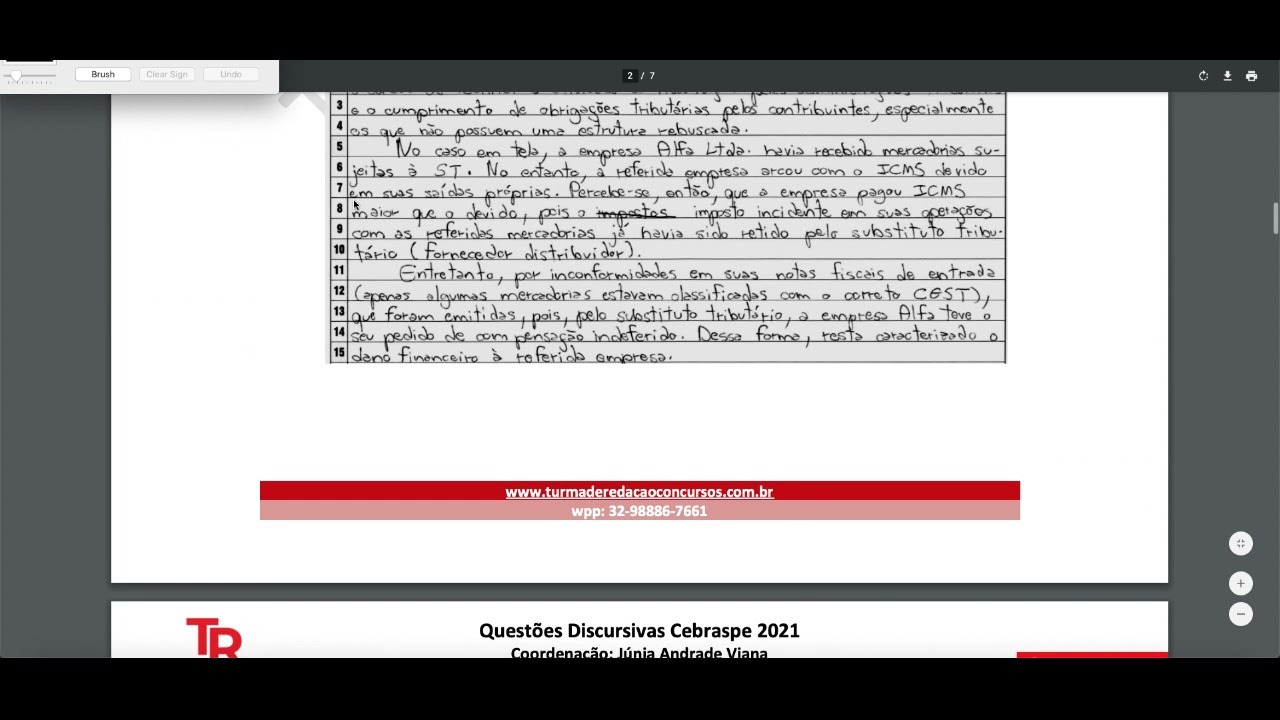 Brush
Clear Sign
Undo
2 / 7
3 e o cumprimento de obrigações tributárias pelos contribuintes, especialmente
4 os que não possuem uma estrutura rebuscada.
5 No caso em tela, a empresa Alfa Ltda. havia recebido mercadorias su-
6 jeitas à ST. No entanto, a referida empresa arcou com o ICMS devido
7 em suas saídas próprias. Percebe-se, então, que a empresa pagou ICMS
8 maior que o devido, pois o impostos imposto incidente em suas operações
9 com as referidas mercadorias já havia sido retido pelo substituto tribu-
10 tário (fornecedor distribuidor).
11 Entretanto, por inconformidades em suas notas fiscais de entrada
12 (apenas algumas mercadorias estavam classificadas com o correto CEST),
13 que foram emitidas, pois, pelo substituto tributário, a empresa Alfa teve o
14 seu pedido de compensação indeferido. Dessa forma, resta caracterizado o
15 dano financeiro à referida empresa.
www.turmaderedacaoconcursos.com.br
wpp: 32-98886-7661
TR
Questões Discursivas Cebraspe 2021
Coordenação: Júnia Andrade Viana